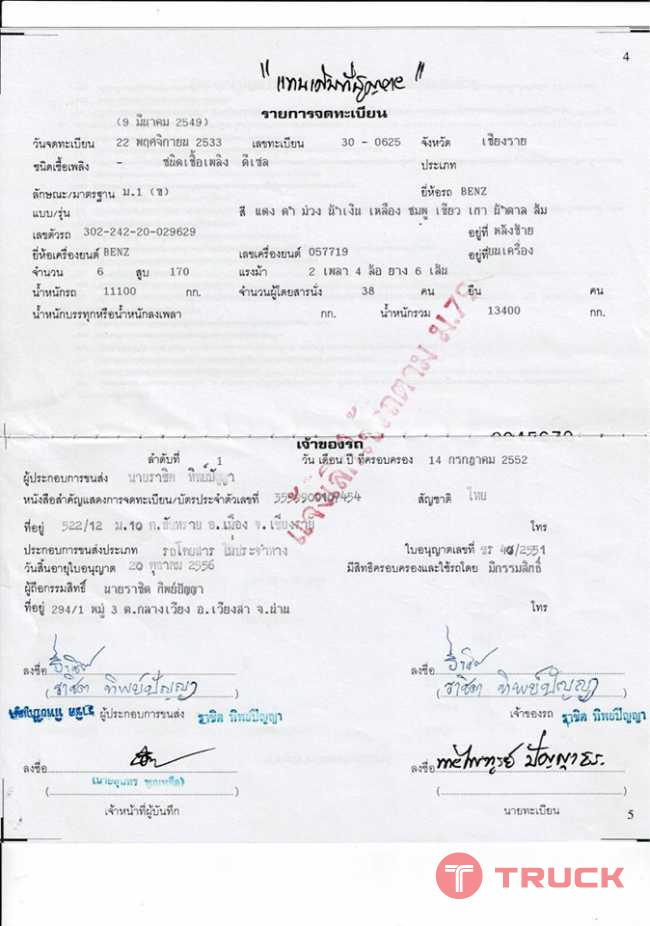 4
"แทนเล่มที่สูญหาย"
รายการจดทะเบียน
(9 มีนาคม 2549)
วันจดทะเบียน 22 พฤศจิกายน 2533 เลขทะเบียน 30 - 0625 จังหวัด เชียงราย
ชนิดเชื้อเพลิง - ชนิดเชื้อเพลิง ดีเซล ประเภท
ลักษณะ/มาตรฐาน ม.1 (ข) ยี่ห้อรถ BENZ
แบบ/รุ่น สี แดง ดำ ม่วง น้ำเงิน เหลือง ชมพู เขียว เทา น้ำตาล ส้ม
เลขตัวรถ 302-242-20-029629 อยู่ที่ หลังซ้าย
ยี่ห้อเครื่องยนต์ BENZ เลขเครื่องยนต์ 057719 อยู่ที่ บนเครื่อง
จำนวน 6 สูบ 170 แรงม้า 2 เพลา 4 ล้อ ยาง 6 เส้น
น้ำหนักรถ 11100 กก. จำนวนผู้โดยสารนั่ง 38 คน ยืน คน
น้ำหนักบรรทุกหรือน้ำหนักลงเพลา กก. น้ำหนักรวม 13400 กก.
แจ้งเลิกใช้รถตาม ม.79
เจ้าของรถ
ลำดับที่ 1 วัน เดือน ปี ที่ครอบครอง 14 กรกฎาคม 2552
ผู้ประกอบการขนส่ง นายราชิต ทิพย์ปัญญา
หนังสือสำคัญแสดงการจดทะเบียน/บัตรประจำตัวเลขที่ สัญชาติ ไทย
ที่อยู่ 522/12 ม.10 ต.สันทราย อ.เมือง จ.เชียงราย โทร
ประกอบการขนส่งประเภท รถโดยสาร ไม่ประจำทาง ใบอนุญาตเลขที่ ชร /2551
วันสิ้นอายุใบอนุญาต 20 ตุลาคม 2556 มีสิทธิครอบครองและใช้รถโดย มีกรรมสิทธิ์
ผู้ถือกรรมสิทธิ์ นายราชิต ทิพย์ปัญญา
ที่อยู่ 294/1 หมู่ 3 ต.กลางเวียง อ.เวียงสา จ.น่าน โทร
ลงชื่อ ลงชื่อ
(ราชิต ทิพย์ปัญญา) (ราชิต ทิพย์ปัญญา)
ราชิต ทิพย์ปัญญา ผู้ประกอบการขนส่ง ราชิต ทิพย์ปัญญา เจ้าของรถ ราชิต ทิพย์ปัญญา
ลงชื่อ ลงชื่อ
เจ้าหน้าที่ผู้บันทึก นายทะเบียน
5
TRUCK